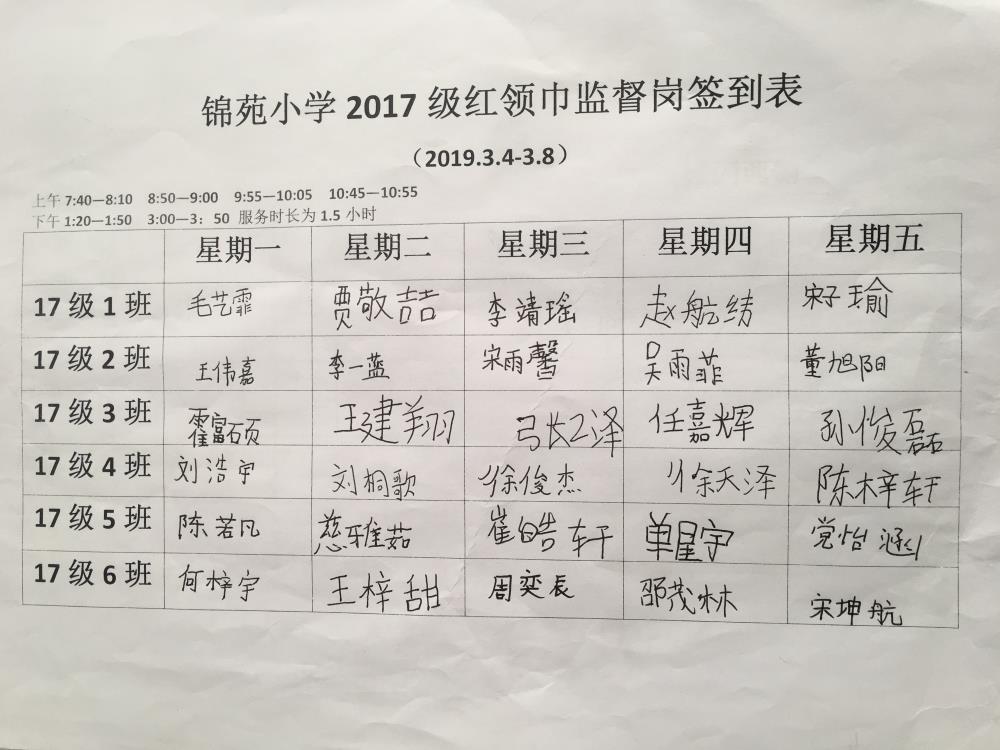 锦苑小学 2017 级红领巾监督岗签到表
（2019.3.4-3.8）
上午 7:40—8:10 8:50—9:00 9:55—10:05 10:45—10:55
下午 1:20—1:50 3:00—3：50 服务时长为 1.5 小时
星期一 星期二 星期三 星期四 星期五
17 级 1 班 毛艺霏 贾敬喆 李靖瑶 赵航结 宋子瑜
17 级 2 班 王伟嘉 李一蓝 宋雨馨 吴雨菲 董旭阳
17 级 3 班 霍富硕 王建翔 张工泽 任嘉辉 孙俊磊
17 级 4 班 刘浩宇 刘桐歌 徐俊杰 徐天泽 陈梓轩
17 级 5 班 陈若凡 慈雅茹 崔皓轩 单星宇 党怡涵
17 级 6 班 何梓宇 王梓甜 周奕辰 邵茂林 宋坤航